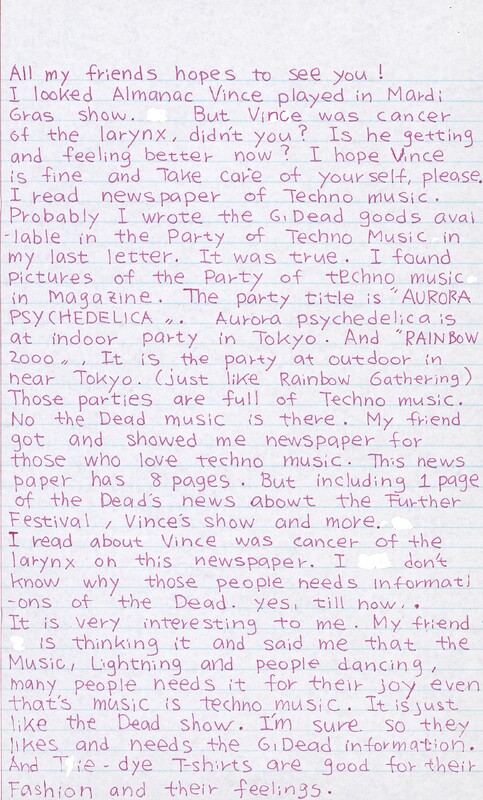 All my friends hopes to see you!
I looked Almanac Vince played in Mardi
Gras show. But Vince was cancer
of the larynx, didn't you? Is he getting
and feeling better now? I hope Vince
is fine and Take care of yourself, please.
I read newspaper of Techno music.
Probably I wrote the G.Dead goods avai
-lable in the Party of Techno Music in
my last letter. It was true. I found
pictures of the Party of techno music
in Magazine. The party title is "AURORA
PSYCHEDELICA„. Aurora psychedelica is
at indoor party in Tokyo. And "RAINBOW
2000„, It is the party at outdoor in
near Tokyo. (just like Rainbow Gathering)
Those parties are full of Techno music.
No the Dead music is there. My friend
got and showed me newspaper for
those who love techno music. This news
paper has 8 pages. But including 1 page
of the Dead's news abowt the Further
Festival, Vince's show and more.
I read about Vince was cancer of the
larynx on this newspaper. I don't
know why those people needs informati
-ons of the Dead. yes, till now..
It is very interesting to me. My friend
is thinking it and said me that the
Music, Lightning and people dancing,
many people needs it for their joy even
that's music is techno music. It is just
like the Dead show. I'm sure so they
likes and needs the G.Dead information.
And Tie-dye T-shirts are good for their
Fashion and their feelings.